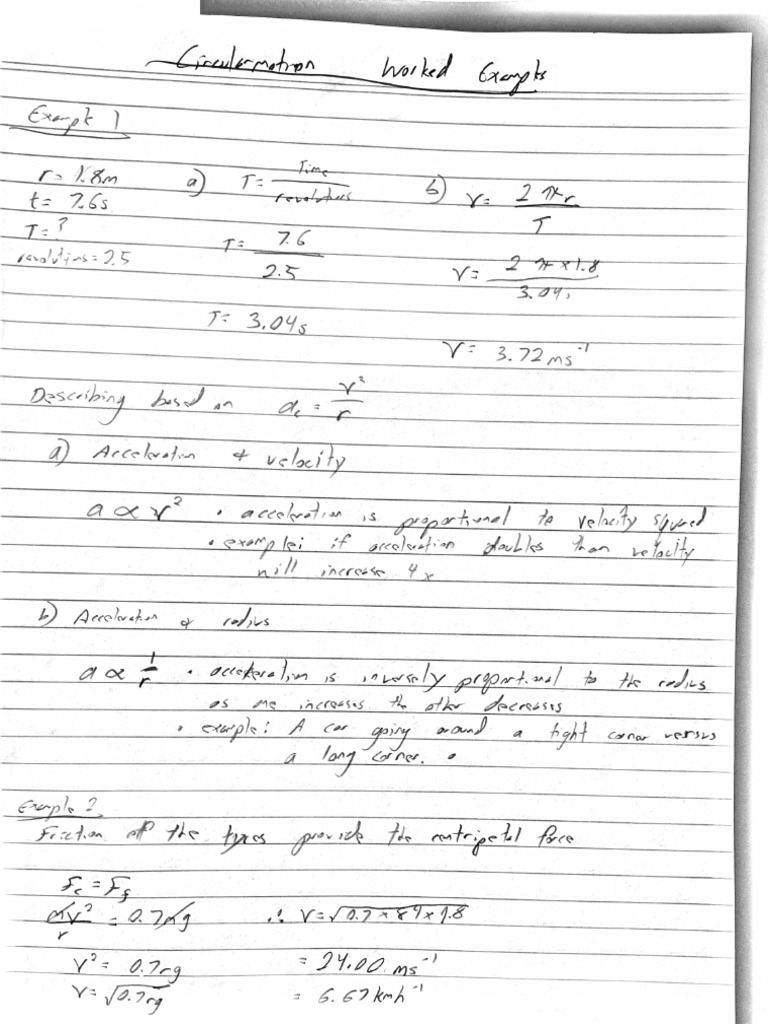 Circular motion Worked Examples
Example 1
r = 1.8m
t = 7.6s
T = ?
revolutions = 2.5
a) T = Time / revolutions
T = 7.6 / 2.5
T = 3.04s
b) v = 2πr / T
v = 2π × 1.8 / 3.04
v = 3.72 ms⁻¹
Describing based on a_c = v² / r
a) Acceleration & velocity
a ∝ v² • acceleration is proportional to velocity squared
• example: if acceleration doubles than velocity
will increase 4x
b) Acceleration & radius
a ∝ 1/r • acceleration is inversely proportional to the radius
as one increases the other decreases
• example: A car going around a tight corner versus
a long corner. •
Example 2
Friction of the tyres provide the centripetal force
F_c = F_f
mv² / r = 0.7mg
v² = 0.7rg
v = √0.7rg
∴ v = √0.7 × 84 × 9.8
= 24.00 ms⁻¹
= 6.67 kmh⁻¹